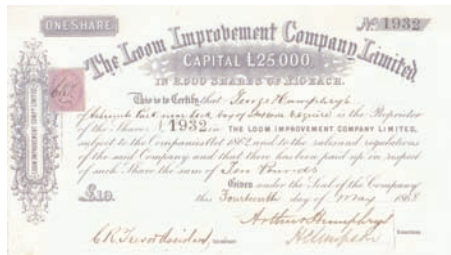 ONE SHARE
No. 1932
The Loom Improvement Company Limited.
CAPITAL £25,000.
IN 2,500 SHARES OF £10 EACH.
This is to Certify that George Humphrys
of near Cork Esquire is the Proprietor
of the Share 1932 in THE LOOM IMPROVEMENT COMPANY LIMITED,
subject to the Companies Act 1862 and to the rules and regulations
of the said Company and that there has been paid up in respect
of such Share the sum of Ten Pounds
Given under the Seal of the Company
£10. this Fourteenth day of May 186
Arthur Humphrys